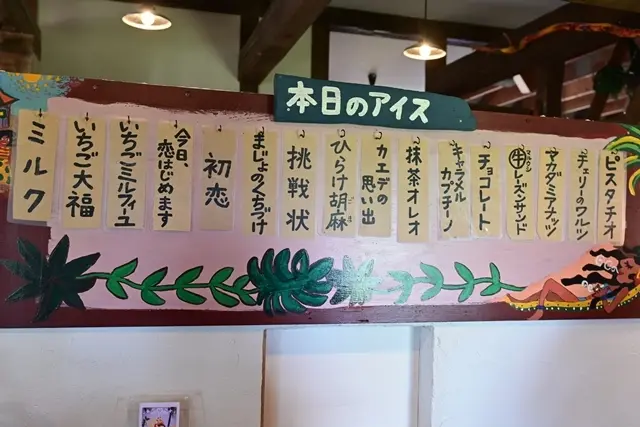 本日のアイス
ピスタチオ
チェリーのワルツ
マカダミアナッツ
レーズンサンド
チョコレート
キャラメル
カプチーノ
抹茶オレオ
カエデの
思い出
ひらけ胡麻
挑戦状
まじょのくちづけ
初恋
今日、
恋はじめます
いちごミルフィユ
いちご大福
ミルク